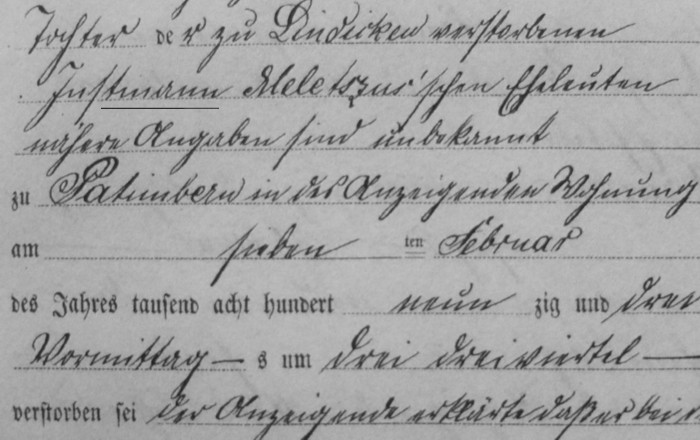 Tochter der zu Lindicken verstorbenen
Instmann Meletszus'schen Eheleuten
nähere Angaben sind unbekannt
zu Patimbern in des Anzeigenden Wohnung
am sieben ten Februar
des Jahres tausend acht hundert neun zig und drei
Vormittag – s um drei dreiviertel –
verstorben sei der Anzeigende erklärte daß er bei